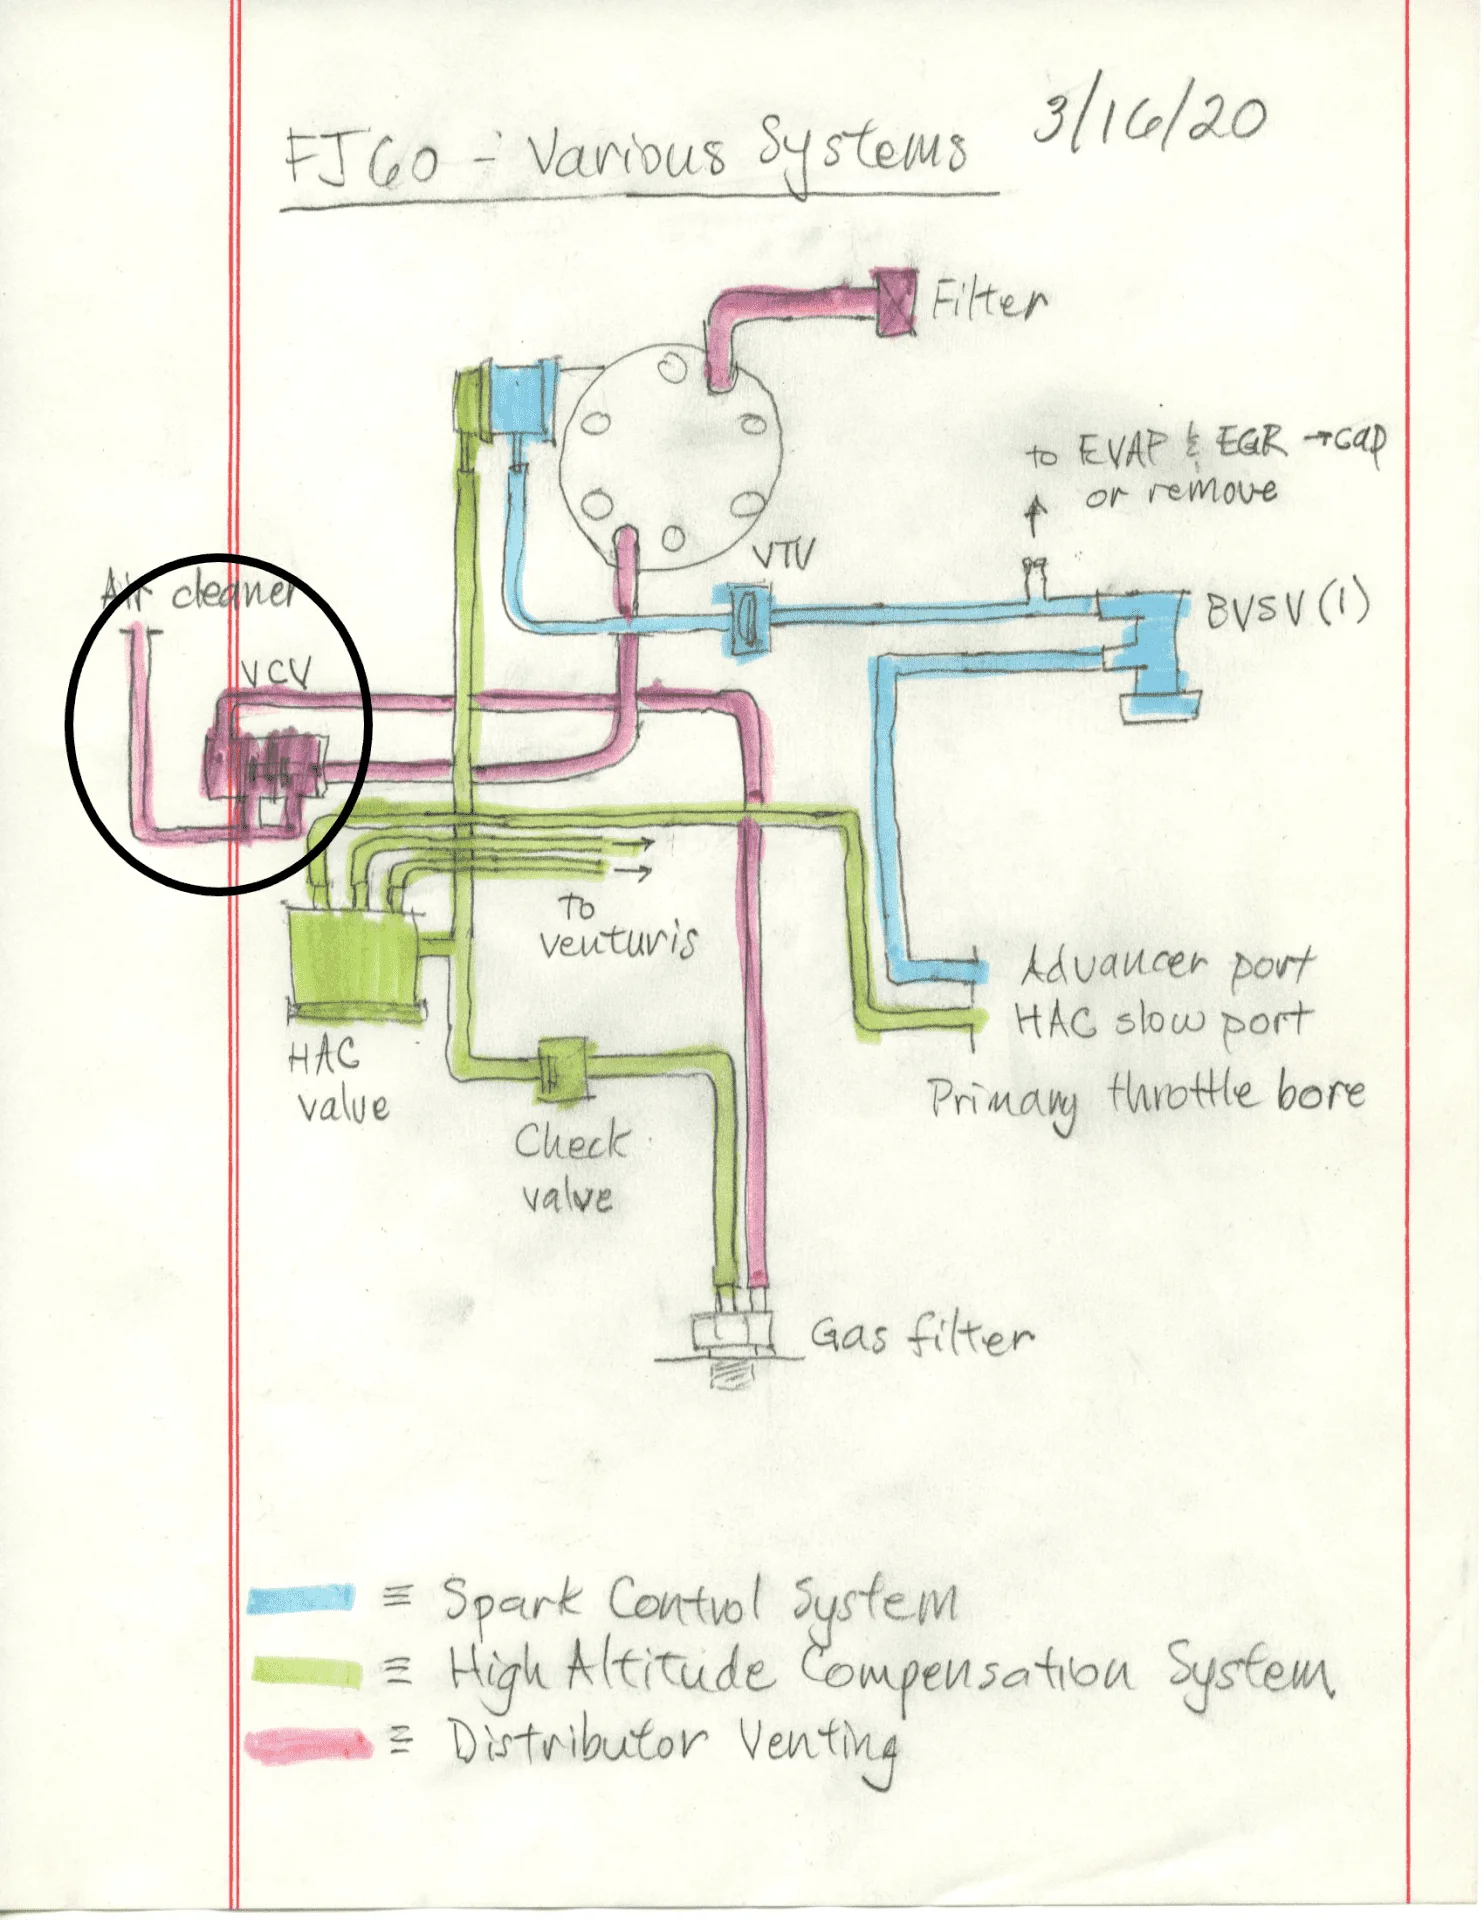 3/16/20
FJ60 - Various Systems
Filter
to EVAP & EGR → cap
or remove
VTV
Air cleaner
BVSV (1)
VCV
To
venturis
Advancer port
HAC slow port
HAC
valve
Primary throttle bore
Check
valve
Gas filter
≡ Spark Control System
≡ High Altitude Compensation System
≡ Distributor Venting